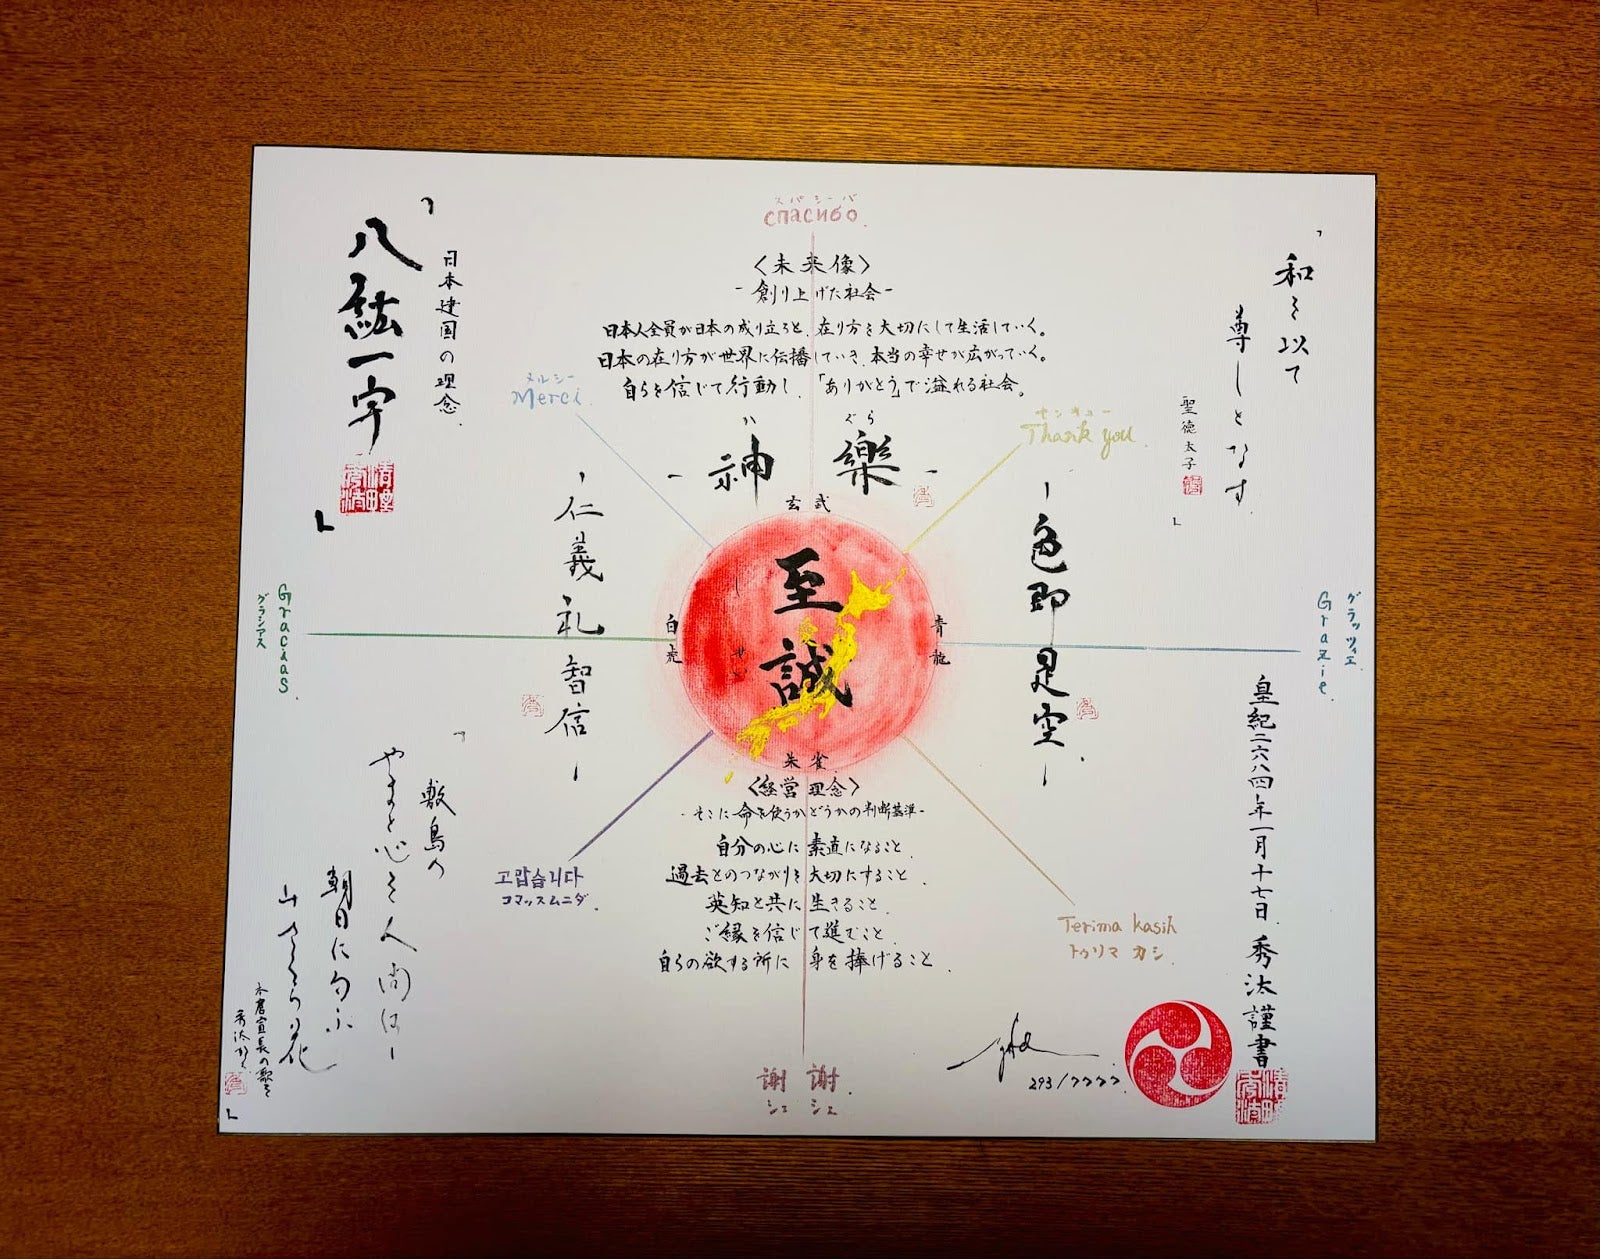 スパシーバ
спасибо.
〈未来像〉
-創り上げた社会-
日本人全員が日本の成り立ちと、在り方を大切にして生活していく。
日本の在り方が世界に伝播していき、本当の幸せが広がっていく。
自らを信じて行動し、「ありがとう」で溢れる社会。
「八紘一宇」
日本建国の理念.
「和を以て
尊しとなす」
聖徳太子
メルシー
Merci.
センキュー
Thank you.
か ぐら
-神 楽-
玄武
-仁義礼智信-
-色即是空-
至誠
し せい
白虎
青龍
朱雀
Gracias.
グラシアス
グラッツィエ
Grazie.
〈経営理念〉
-そこに命を使うかどうかの判断基準-
自分の心に素直になること.
過去とのつながりを大切にすること.
英知と共に生きること.
ご縁を信じて進むこと.
自らの欲する所に身を捧げること.
고맙습니다
コマッスムニダ.
Terima kasih
トゥリマ カシ.
謝謝.
シェ シェ
「敷島の
やまと心を人問はー
朝日に匂ふ
山さくら花
本居宣長の歌を
秀汰かく」
皇紀二六八四年一月十七日.秀汰謹書
293/7777.